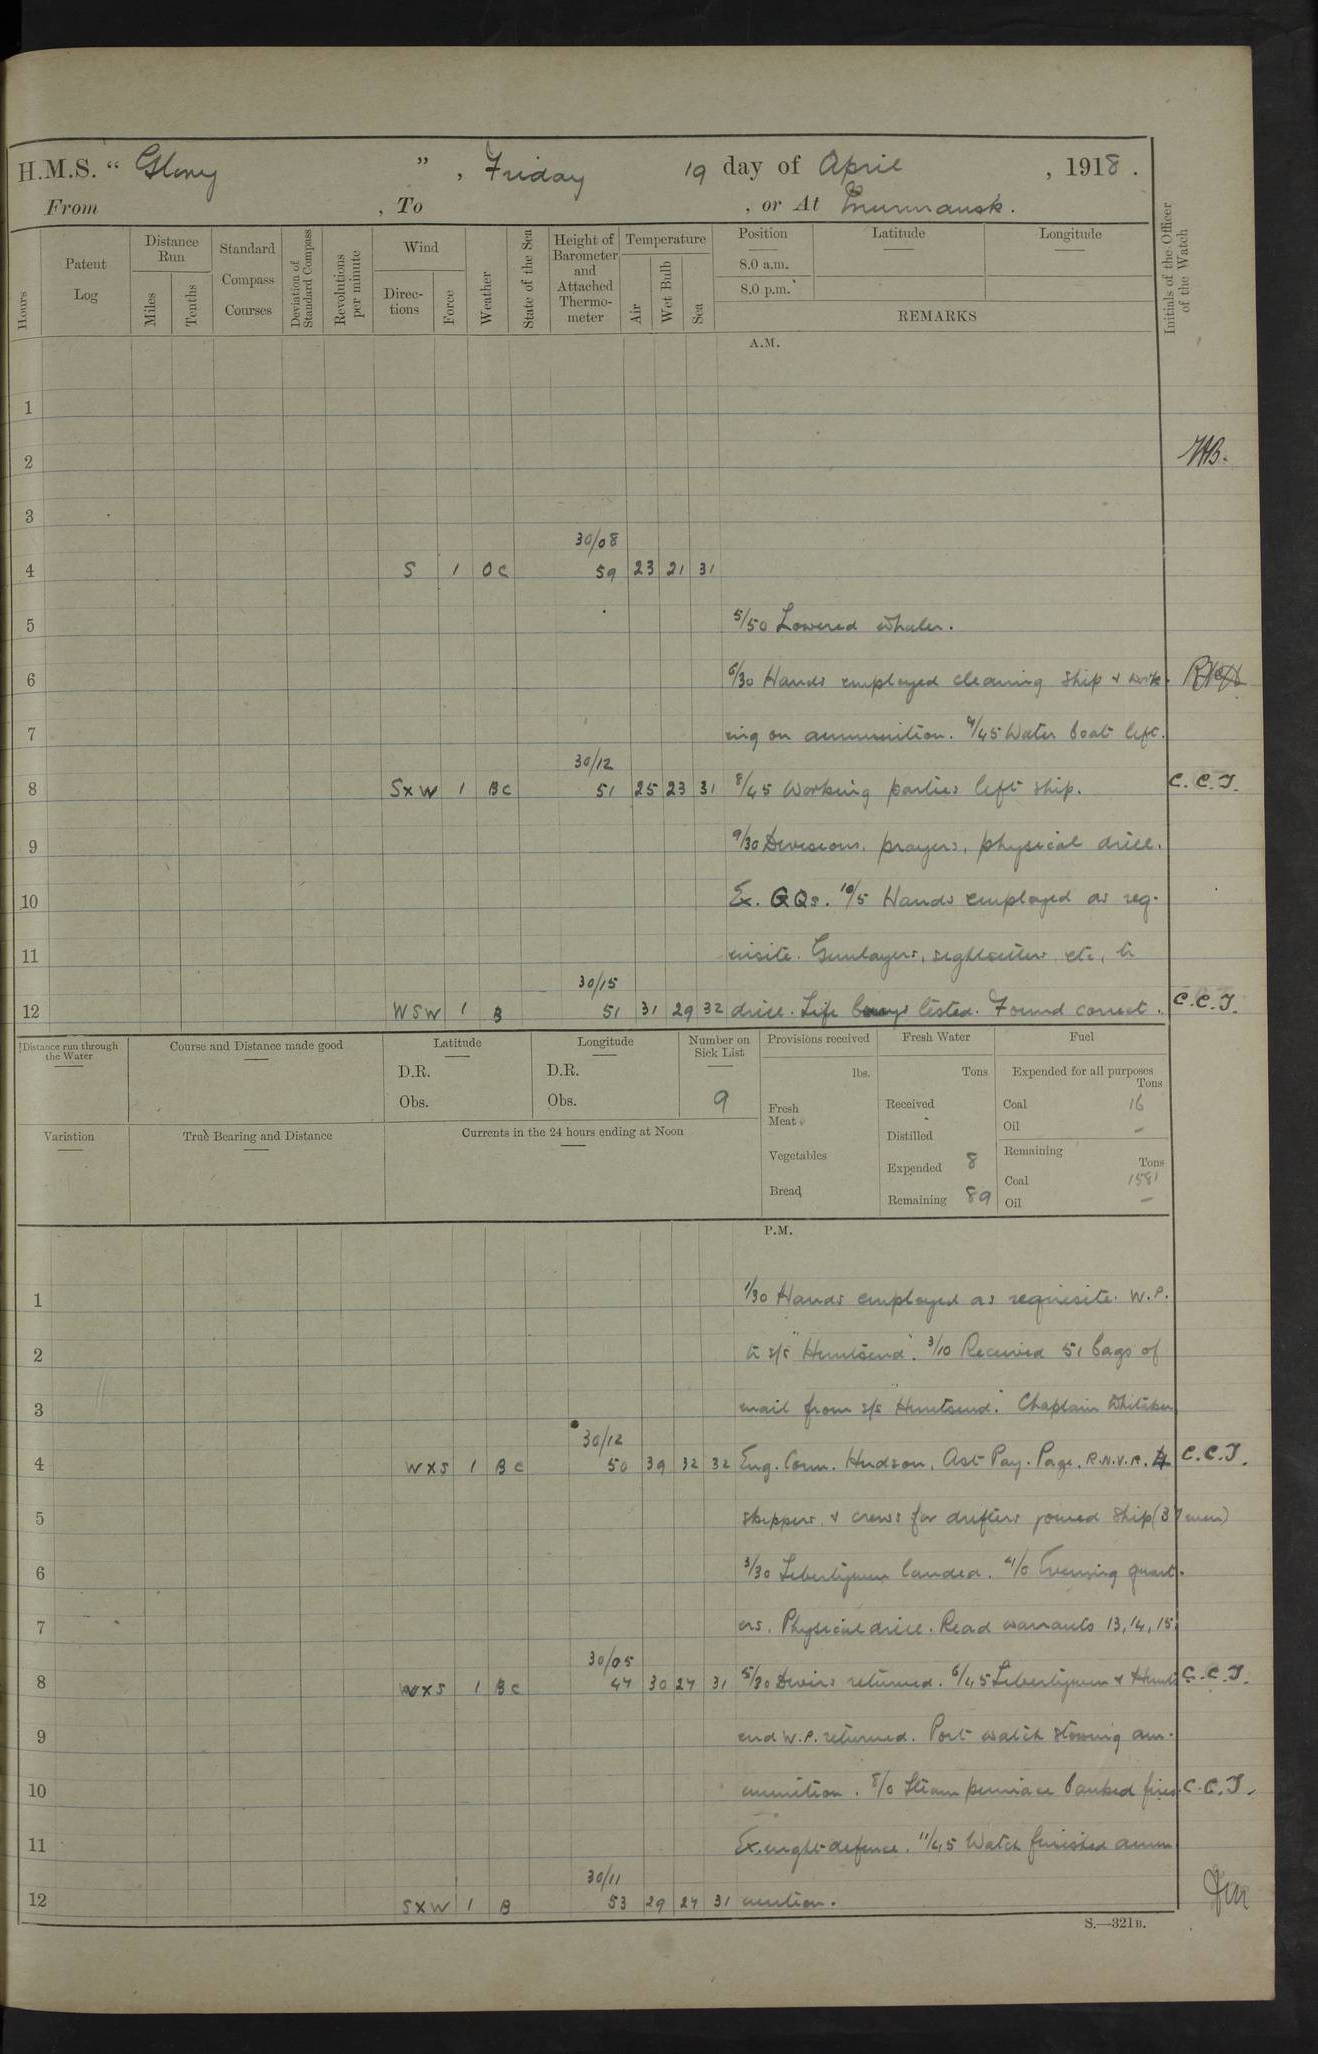 H.M.S. “ Glory ” , Friday 19 day of April , 1918 .
From , To , or At Murmansk .
Hours
Patent Log
Distance Run
Miles
Tenths
Standard Compass Courses
Deviation of Standard Compass
Revolutions per minute
Wind
Direc-tions
Force
Weather
State of the Sea
Height of Barometer and Attached Thermo-meter
Temperature
Air
Wet Bulb
Sea
Position
8.0 a.m.
8.0 p.m.
Latitude
Longitude
REMARKS
Initials of the Officer of the Watch
A.M.
1
2
3
30/08
4 S 1 OC 59 23 21 31
5 5/50 Lowered whaler.
6 6/30 Hands employed cleaning ship & work-
7 ing on ammunition. 7/45 Water boat left.
30/12
8 SXW 1 BC 51 25 23 31 8/45 Working parties left ship. C.C.T.
9 9/30 Divisions, prayers, physical drill.
10 Ex. GQs. 10/5 Hands employed as req-
11 uisite. Gunlayers, sightsetters etc, to
30/15
12 WSW 1 B 51 31 29 32 drill. Life buoys tested. Found correct. C.C.T.
Distance run through the Water
Course and Distance made good
Latitude
D.R.
Obs.
Longitude
D.R.
Obs.
Number on Sick List
9
Provisions received
lbs.
Fresh Meat
Vegetables
Bread
Fresh Water
Tons
Received
Distilled
Expended 8
Remaining 89
Fuel
Expended for all purposes
Tons
Coal 16
Oil –
Remaining
Tons
Coal 1581
Oil –
Variation
True Bearing and Distance
Currents in the 24 hours ending at Noon
P.M.
1 1/30 Hands employed as requisite. W.P.
2 to s/s "Huntsend". 3/10 Received 51 bags of
3 mail from s/s "Huntsend." Chaplain Whitaker
30/12
4 WXS 1 BC 50 39 32 32 Eng. Com. Hudson, Ast Pay. Page, R.N.V.R. C.C.T.
5 skippers & crews for drifters joined ship (37 men)
6 3/30 Libertymen landed. 4/0 Evening quart-
7 ers. Physical drill. Read warrants 13, 14, 15.
30/05
8 WXS 1 BC 47 30 27 31 5/30 Divers returned. 6/45 Libertymen & Hunts- C.C.T.
9 end W.P. returned. Port watch stowing am-
10 munition. 8/0 Steam pinnace banked fires. C.C.T.
11 Ex. night defence. 11/45 Watch finished amm
30/11
12 SXW 1 B 53 29 27 31 unition.
S.—321B.